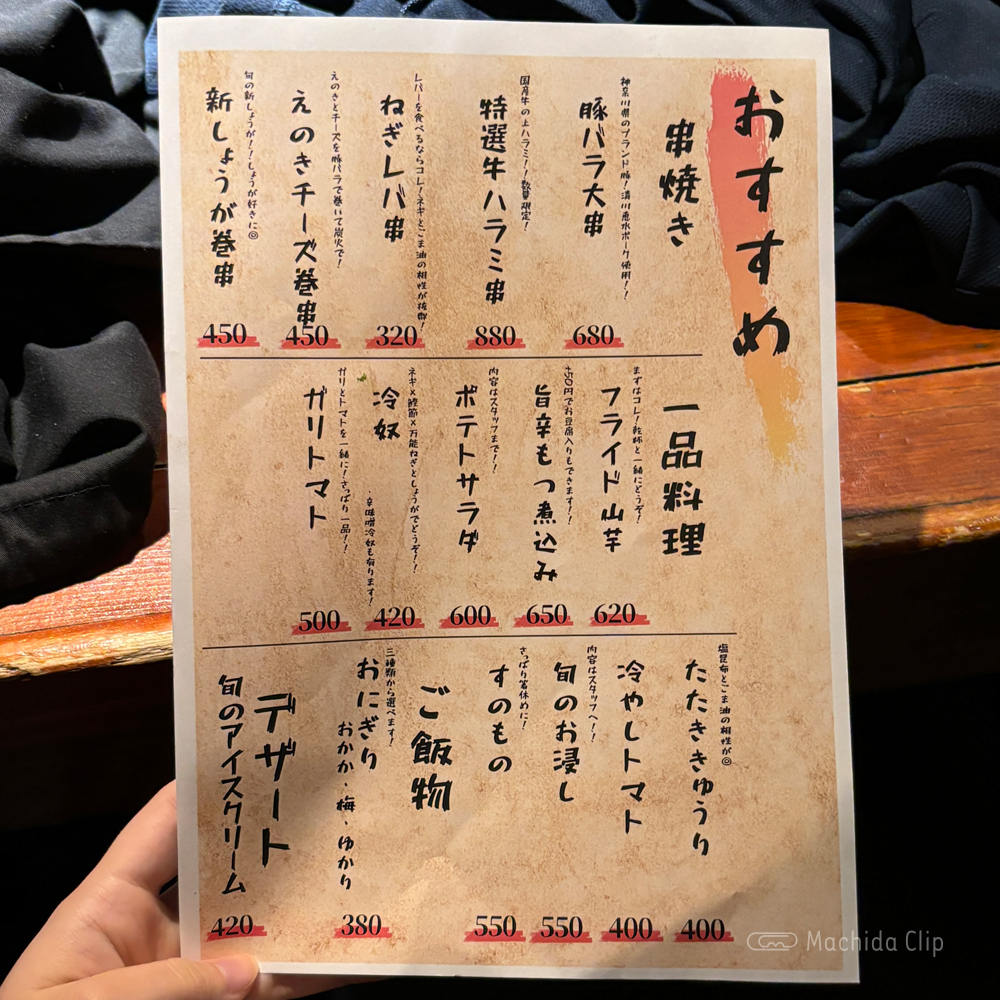 おすすめ
串焼き
神奈川県のブランド豚!清川恵水ポーク使用!!
豚バラ大串
680
国産牛の上ハラミ!!数量限定!
特選牛ハラミ串
880
レバーを食べるならコレ!ネギとごま油の相性が抜群!
ねぎレバ串
320
えのきとチーズを豚バラで巻いて炭火で!
えのきチーズ巻串
450
旬の新しょうが!!しょうが好きに◎
新しょうが巻串
450
一品料理
まずはコレ!乾杯と一緒にどうぞ!
フライド山芋
620
+50円でお豆腐入りもできます!!
旨辛もつ煮込み
650
内容はスタッフまで!!
ポテトサラダ
600
ネギ×鰹節×万能ねぎとしょうがでどうぞ!!
冷奴
・辛味噌冷奴も有ります!
420
ガリとトマトを一緒に!さっぱり一品!!
ガリトマト
500
塩昆布とごま油の相性が◎
たたききゅうり
400
冷やしトマト
400
内容はスタッフへ!!
旬のお浸し
550
さっぱり箸休めに!
すのもの
550
ご飯物
三種類から選べます!
おにぎり
おかか・梅・ゆかり
380
デザート
旬のアイスクリーム
420
Machida Clip